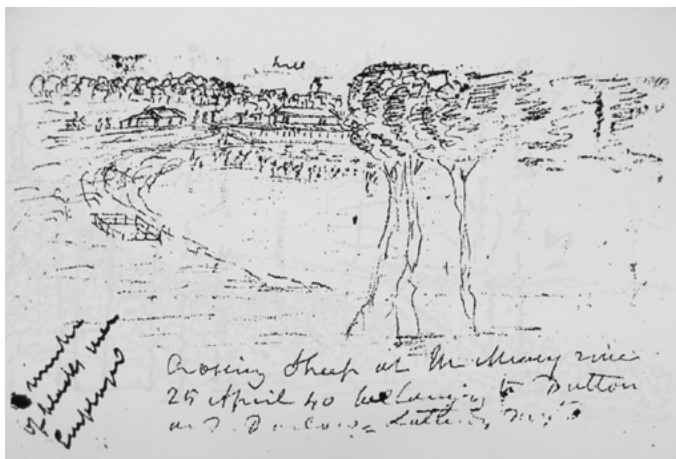 hill
Crossing Sheep at the Murray river
25 April 40 belonging to Dutton
and
number
of blacks were
Employed